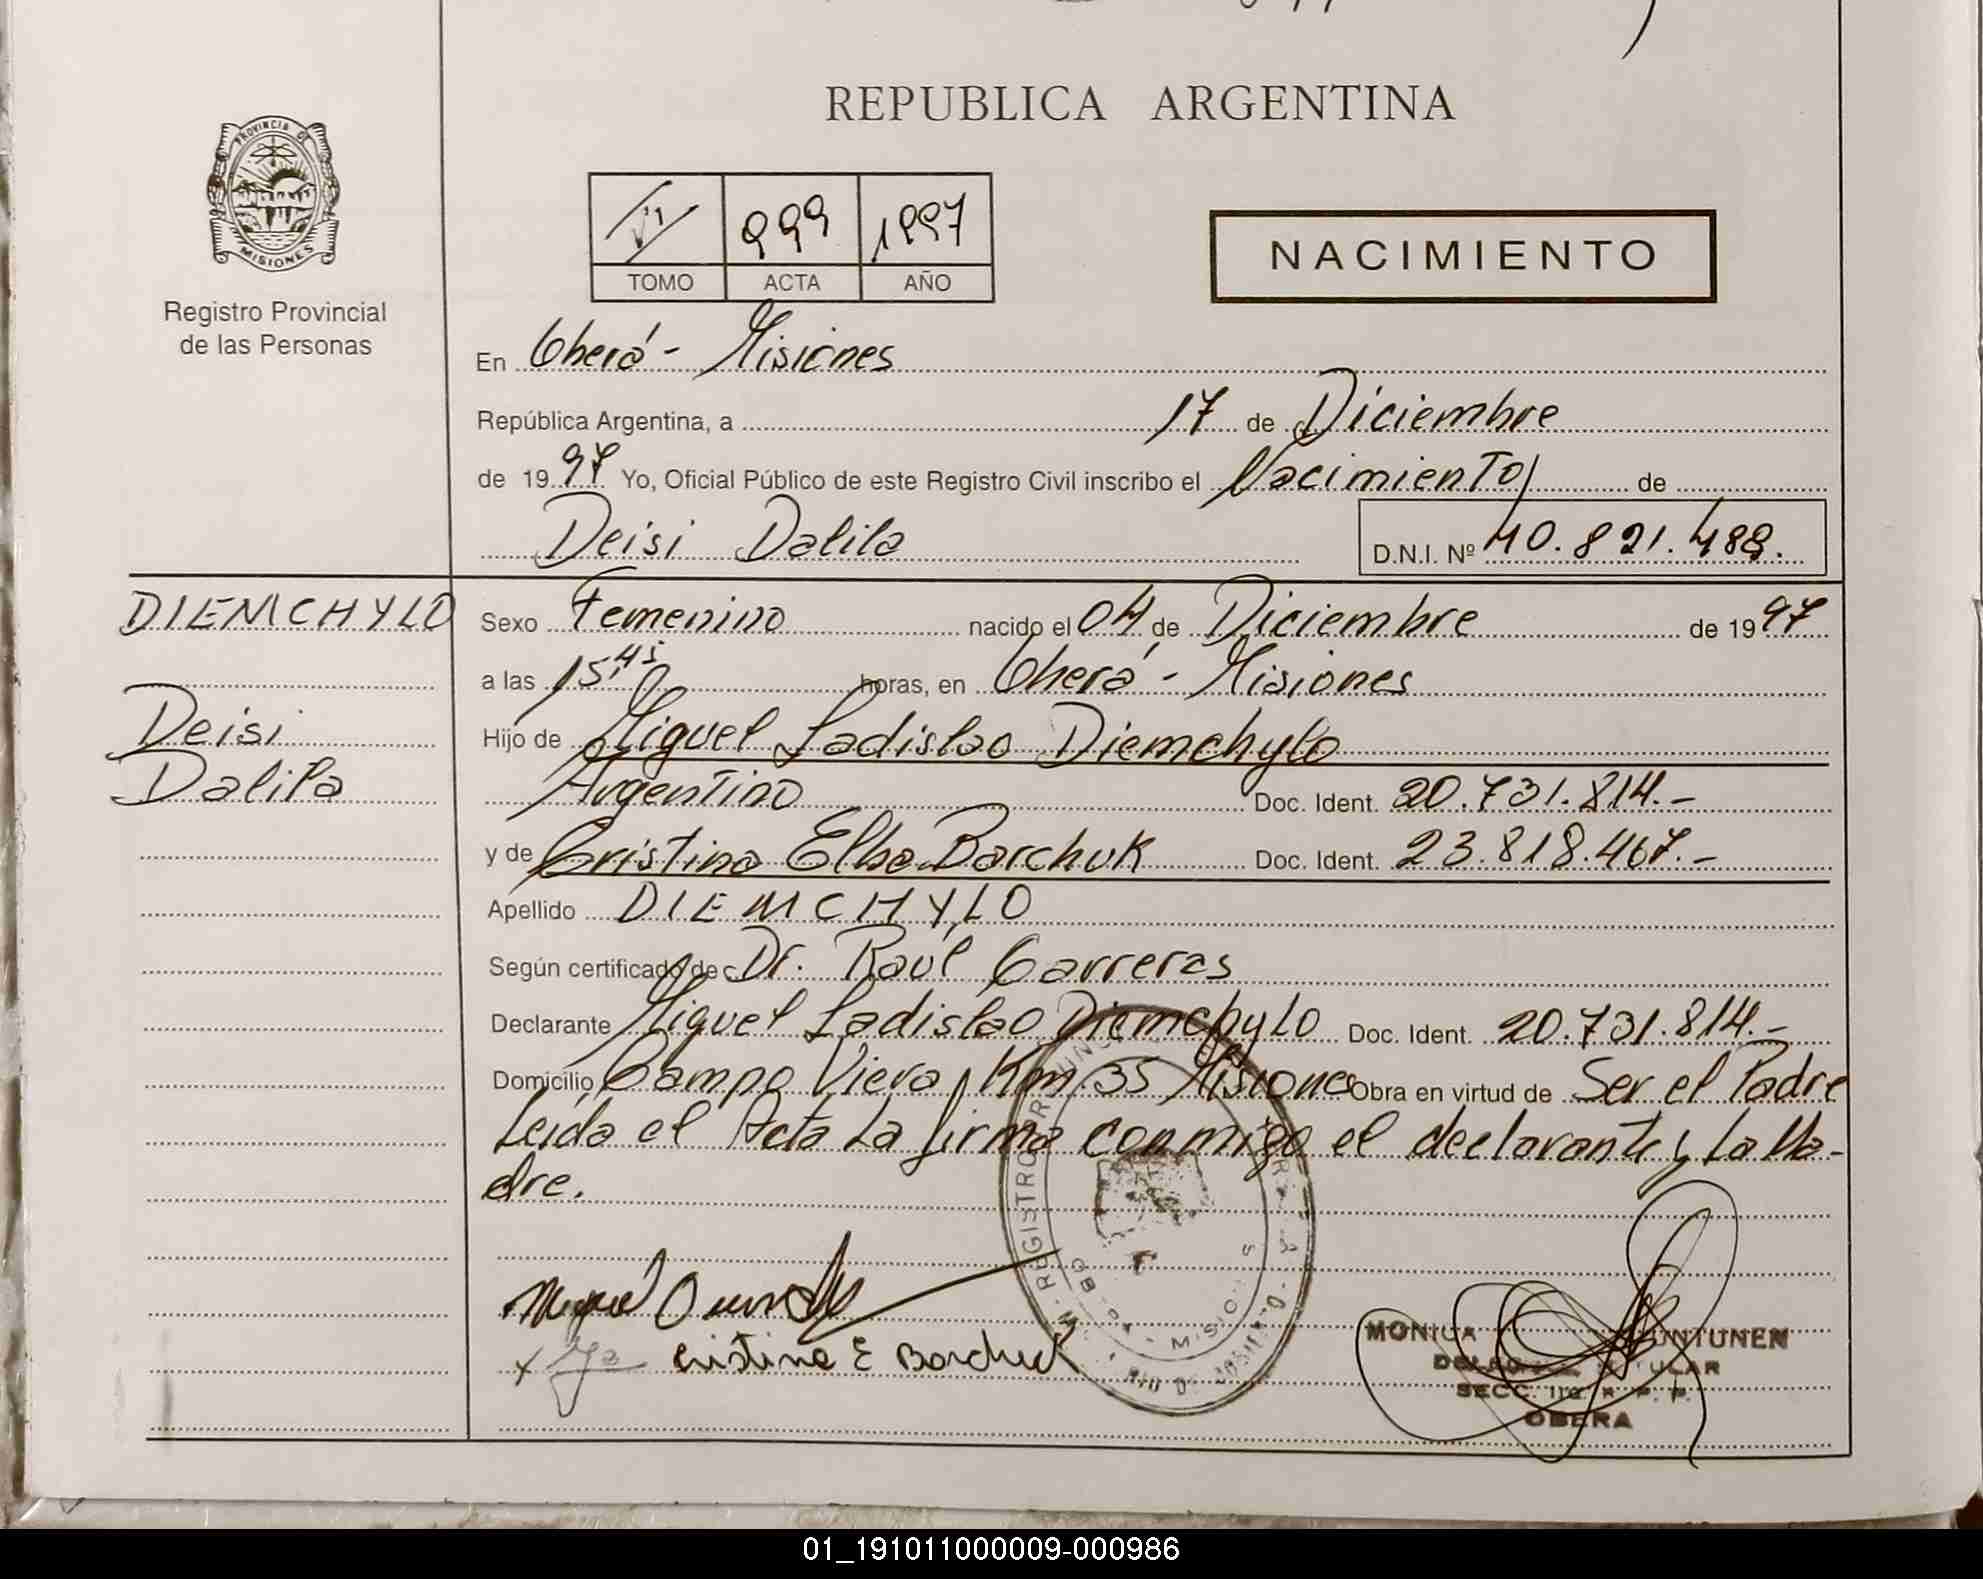 REPUBLICA ARGENTINA
PROVINCIA DE
MISIONES
Registro Provincial
de las Personas
VI 999 1997
TOMO ACTA AÑO
NACIMIENTO
En Oberá - Misiones
República Argentina, a 17 de Diciembre
de 1997 Yo, Oficial Público de este Registro Civil inscribo el Nacimiento de
Deisi Dalila D.N.I. Nº 40.821.488.
DIEMCHYLO
Deisi
Dalila
Sexo Femenino nacido el 04 de Diciembre de 1997
a las 15,45 horas, en Oberá - Misiones
Hijo de Miguel Ladislao Diemchylo
Argentino Doc. Ident. 20.731.814.-
y de Cristina Elba Barchuk Doc. Ident. 23.818.467.-
Apellido DIEMCHYLO
Según certificado de Dr. Raúl Carreras
Declarante Miguel Ladislao Diemchylo Doc. Ident. 20.731.814.-
Domicilio Campo Viera, Km. 35 Misiones Obra en virtud de Ser el Padre
Leída el Acta La firma conmigo el declarante y La Ma-
dre.
Cristina E Barchuk
MONICA
SECC. 1ra R. P. P.
OBERA
01_191011000009-000986